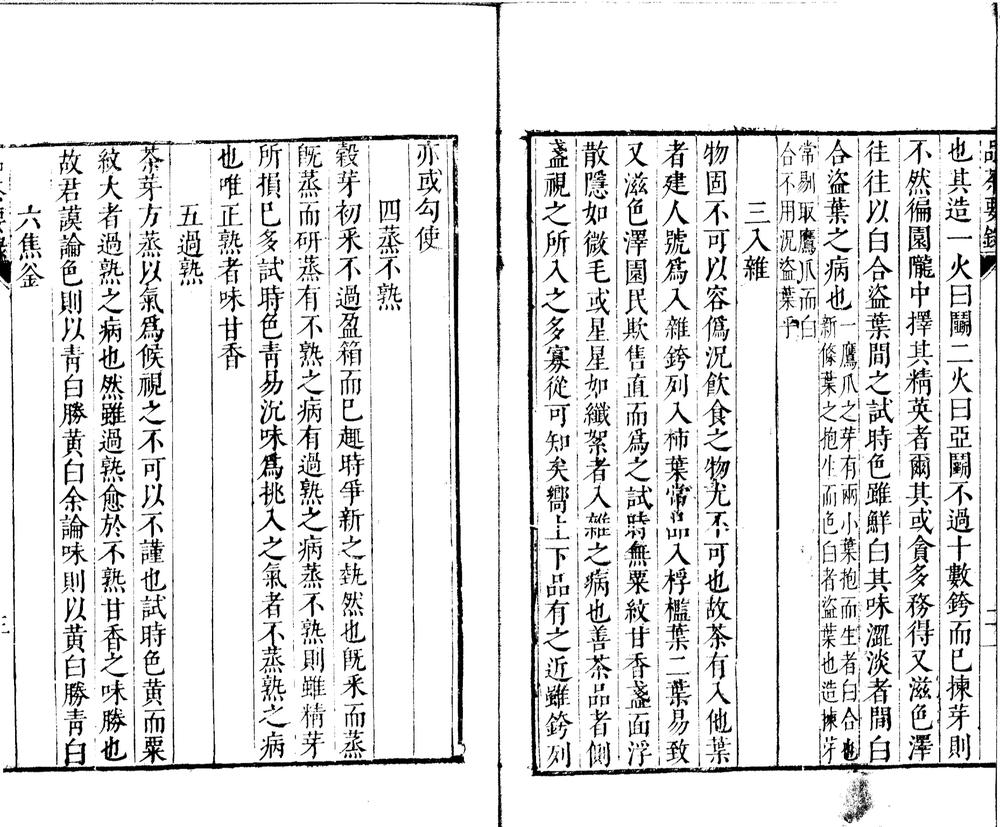 品茶要錄
也其造一火曰鬬二火曰亞鬬不過十數銙而已揀芽則
不然徧園隴中擇其精英者爾其或貪多務得又滋色澤
往往以白合盜葉間之試時色雖鮮白其味澀淡者間白
合盜葉之病也一鷹爪之芽有兩小葉抱而生者白合也
新條葉之抱生而色白者盜葉也造揀芽
常剔取鷹爪而白
合不用況盜葉乎
三入雜
物固不可以容僞況飲食之物尤不可也故茶有入他葉
者建人號爲入雜銙列入柿葉常品入桴檻葉二葉易致
又滋色澤園民欺售直而爲之試時無粟紋甘香盞面浮
散隱如微毛或星星如纖絮者入雜之病也善茶品者側
盞視之所入之多寡從可知矣嚮上下品有之近雖銙列
亦或勾使
四蒸不熟
穀芽初釆不過盈箱而已趣時爭新之埶然也旣釆而蒸
旣蒸而研蒸有不熟之病有過熟之病蒸不熟則雖精芽
所損已多試時色靑易沉味爲桃入之氣者不蒸熟之病
也唯正熟者味甘香
五過熟
茶芽方蒸以氣爲候視之不可以不謹也試時色黃而粟
紋大者過熟之病也然雖過熟愈於不熟甘香之味勝也
故君謨論色則以靑白勝黃白余論味則以黃白勝靑白
六焦釜
三